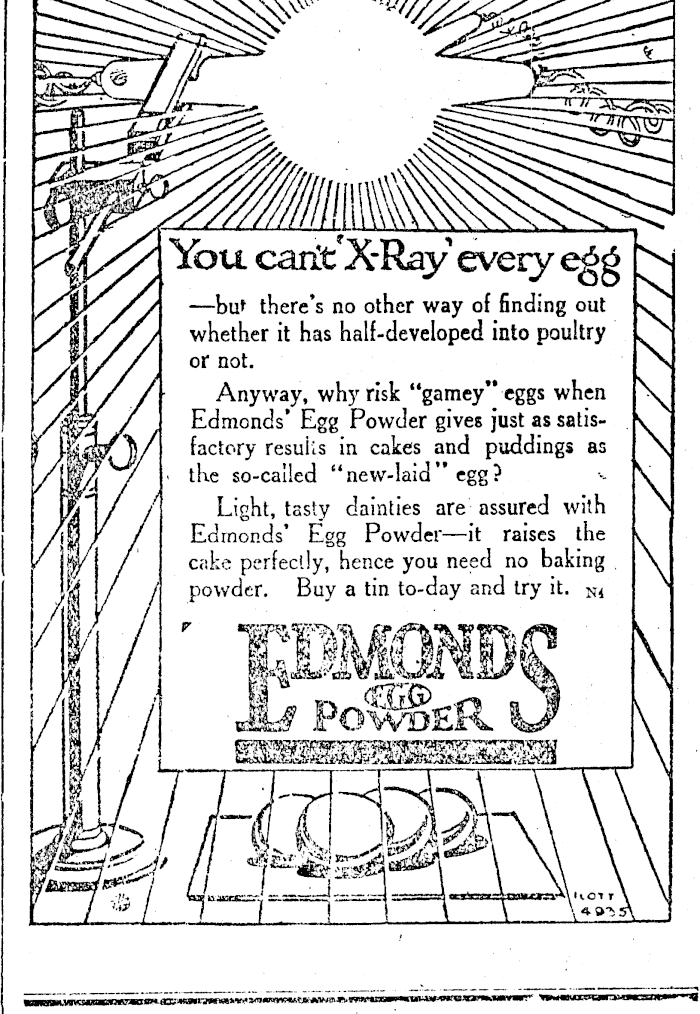 You can't 'X-Ray' every egg
—but there's no other way of finding out
whether it has half-developed into poultry
or not.
Anyway, why risk "gamey" eggs when
Edmonds' Egg Powder gives just as satis-
factory results in cakes and puddings as
the so-called "new-laid" egg?
Light, tasty dainties are assured with
Edmonds' Egg Powder—it raises the
cake perfectly, hence you need no baking
powder. Buy a tin to-day and try it. N4
EDMONDS
EGG
POWDER
ILOTT
4935